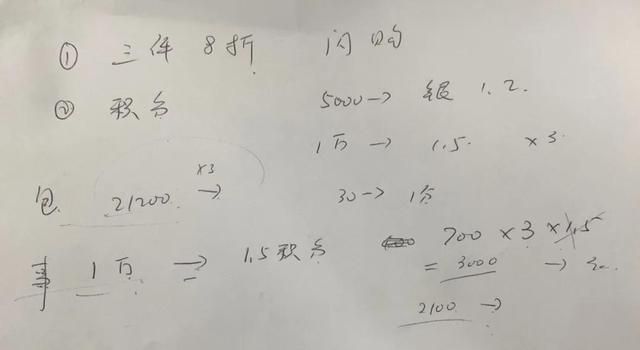 ① 三件 8折 闪购
② 积分
5000→ 银 1.2.
1万 → 1.5. ×3.
包 21200 ×3 →
30→ 1分
1万 → 1.5积分
700 ×3 ×1.5
= 3000 →
2100 →